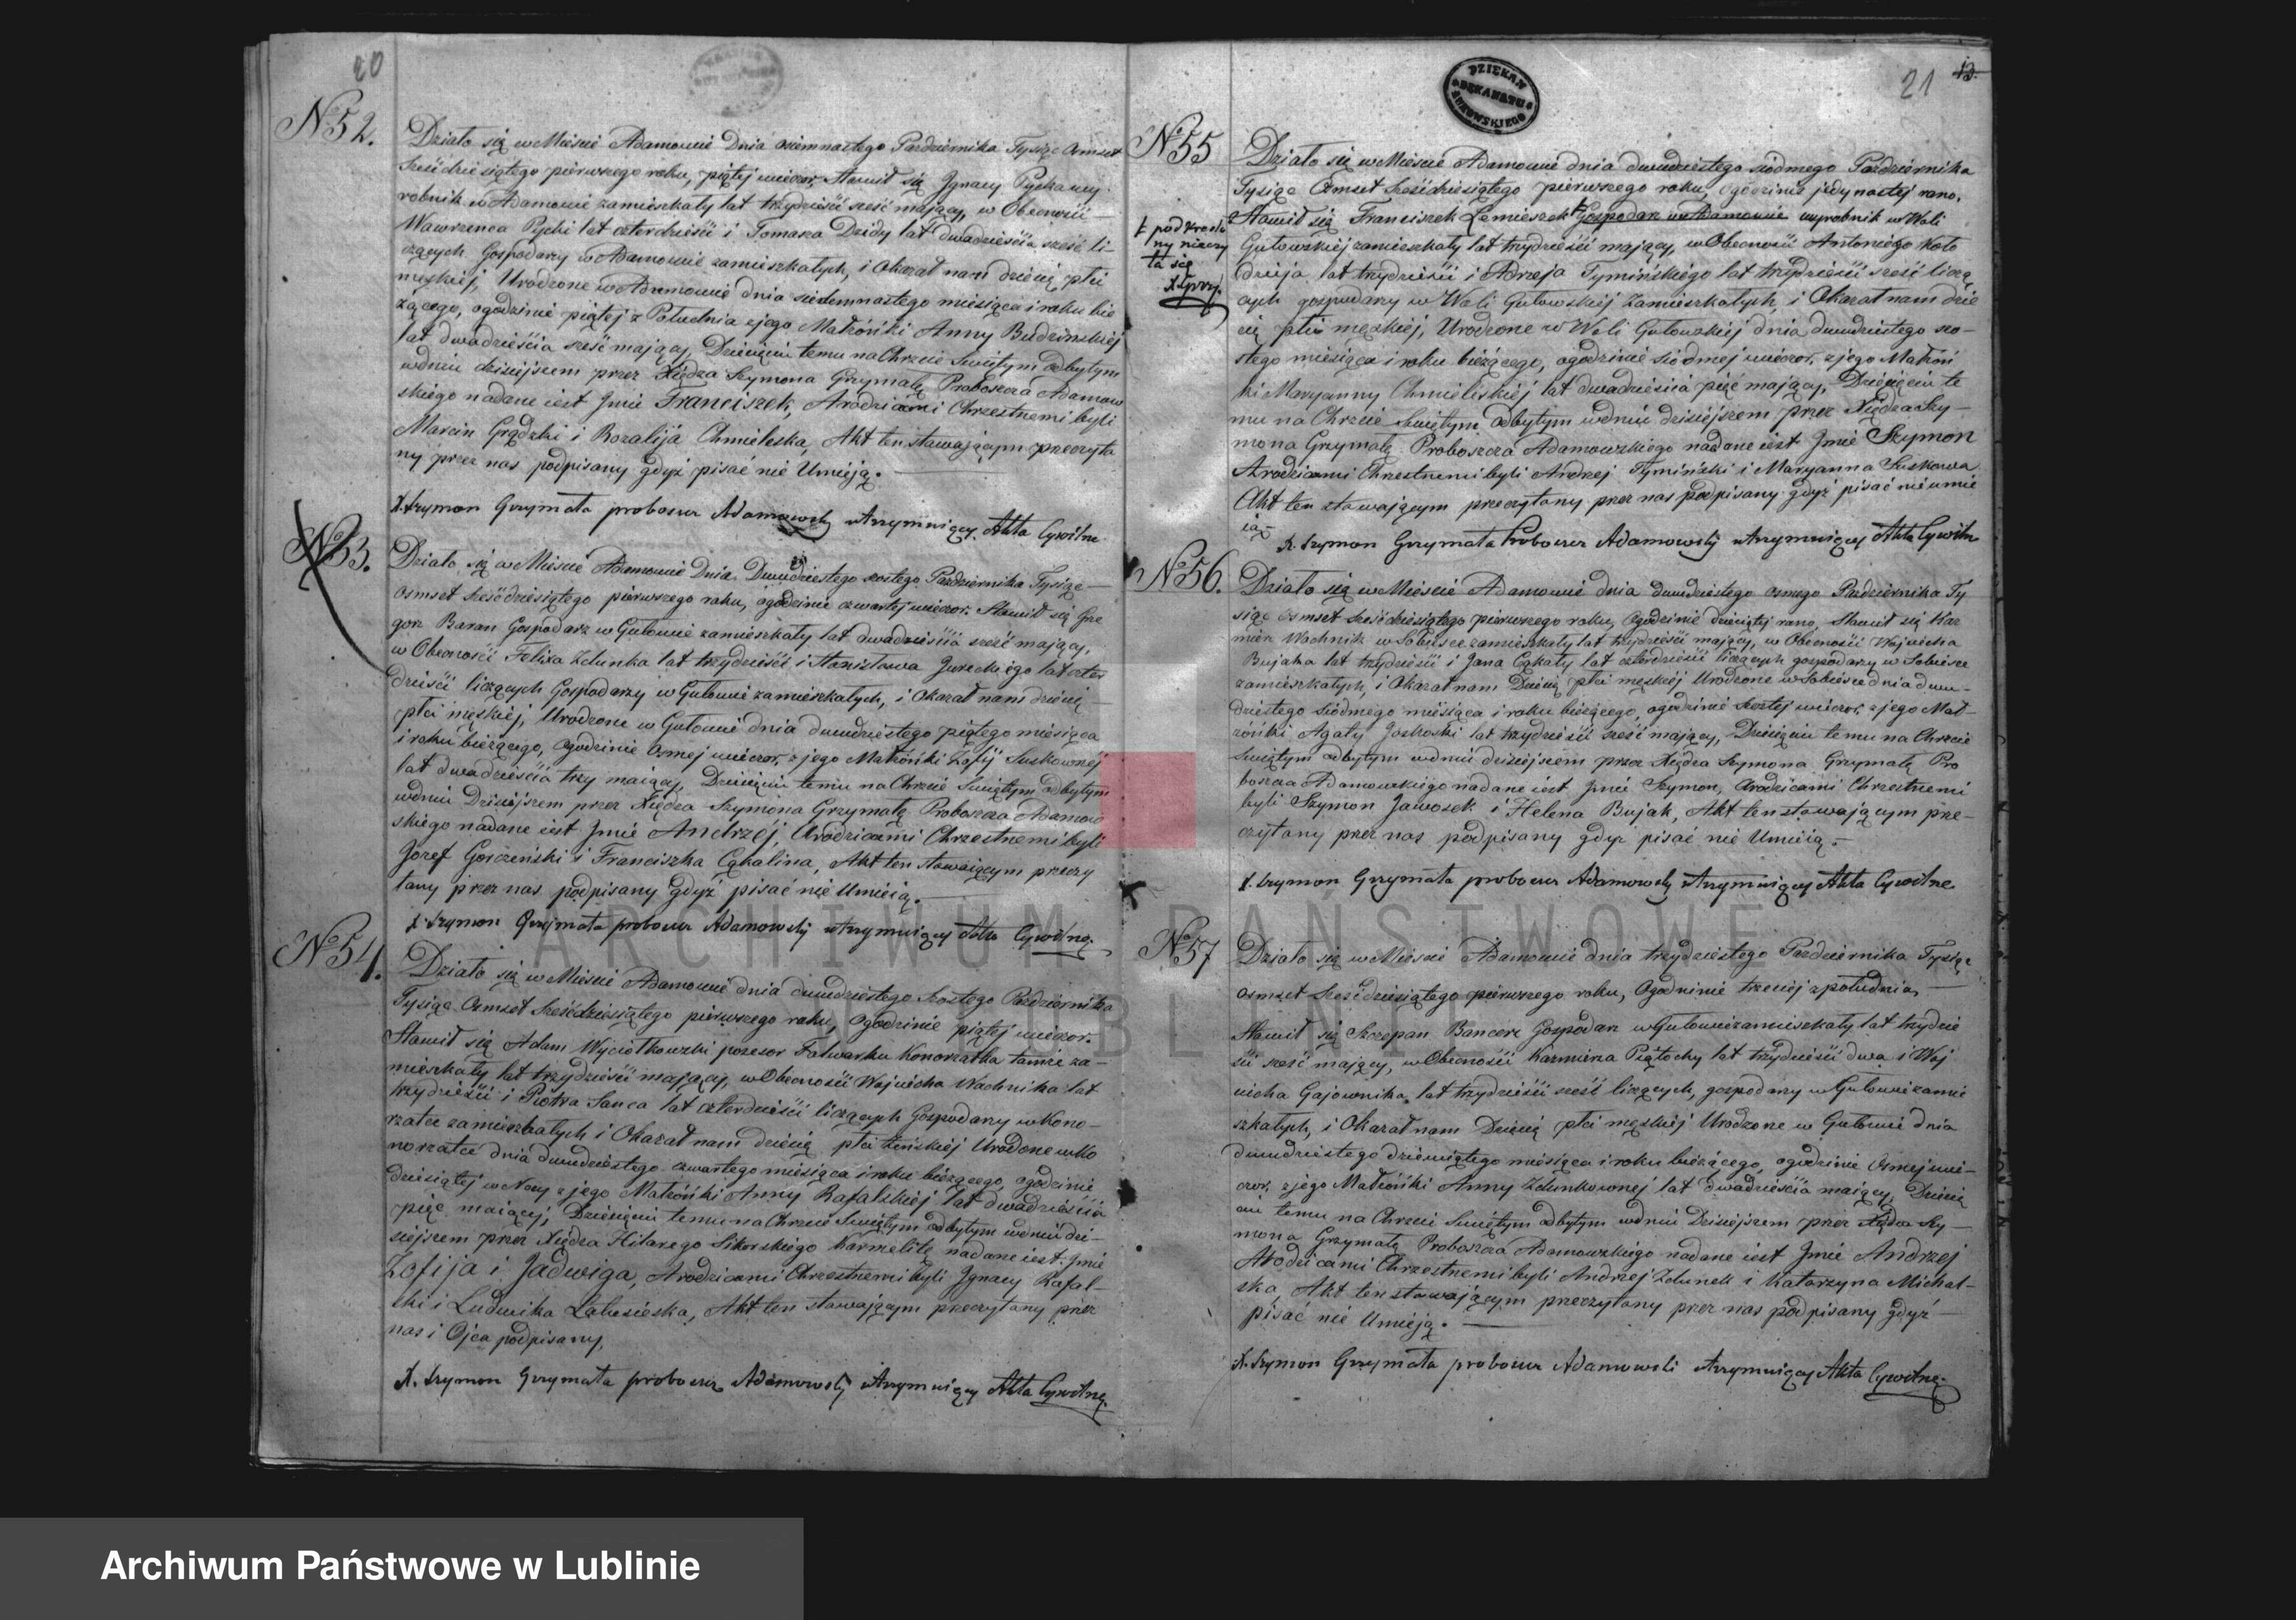 20
N 52.
Działo się w Mieście Adamowie Dnia osiemnastego Października Tysiąc Osmset
Sześdziesiątego pierwszego roku, piątej wieczor, Stawił się Jgnacy Pycka wy
robnik w Adamowie zamieszkały lat trzydzieści sześć mający, w Obecności
Wawrzenca Pycki lat czterdzieści i Tomasza Dzidy lat dwadzieścia sześć li-
czących Gospodarzy w Adamowie zamieszkałych, i Okazał nam dziecię płci
męskiej, Urodzone w Adamowie dnia siedemnastego miesiąca i roku bie
żącego, ogodzinie piątej z Południa z jego Małżonki Anny Budzinskiej
lat dwadzieścia sześć mającej, Dziecięciu temu na Chrzcie Świętym odbytym
wdniu dzisiejszem przez Xiędza Szymona Grzymałę Proboszcza Adamow
skiego nadane iest Jmie Franciszek, Arodzicami Chrzestnemi byli
Marcin Grądzki i Rozalija Chmielska, Akt ten stawającym przeczyta
ny przez nas podpisany gdyż pisać nie Umieją.
X. Szymon Grzymała proboszcz Adamowsky utrzymuiący Akta Cywilne
N 53.
Działo się w Mieście Adamowie Dnia Dwudziestego szostego Października Tysiąc
Osmset sześćdziesiątego pierwszego roku, ogodzinie czwartej wieczor, Stawił się Grze
gorz Baran Gospodarz w Gułowie zamieszkały lat dwadzieścia sześć mający,
w Obecności Felixa Zdunka lat trzydzieści i Stanisława Jureckiego lat czter
dzieści liczących Gospodarzy w Gułowie zamieszkałych, i Okazał nam dziecię
płci męskiej, Urodzone w Gułowie dnia dwudziestego piątego miesiąca
i roku bieżącego, ogodzinie Osmej wieczor, z jego Małżonki Zofij Suskownej
lat dwadzieścia trzy maiącej, Dziecięciu temu na Chrzcie Świętym odbytym
wdniu Dzisiejszem przez Xiędza Szymona Grzymałę Proboszcza Adamow
skiego nadane iest Jmie Andrzej, Arodzicami Chrzestnemi byli
Jozef Gorczeński i Franciszka Cąkalina, Akt ten stawaiącym przeczy
tany przez nas podpisany gdyż pisać nie Umieią.
X Szymon Grzymała proboszcz Adamowsky utrzymuiący Akta Cywilne.
N 54.
Działo się w Mieście Adamowie dnia dwudziestego Szostego Października
Tysiąc Osmset Sześćdziesiątego pierwszego roku, ogodzinie piątej wieczor.
Stawił się Adam Wyciołkowski posesor Falwarku Konorzatka tamże za-
mieszkały lat trzydzieści mający, w Obecności Wojciecha Wachnika lat
trzydzieści i Piotra Sanca lat czterdzieści liczących Gospodarzy w Kono-
rzatce zamieszkałych i Okazał nam dziecię płci Żeńskiej Urodzone w Ko
norzatce dnia dwudziestego czwartego miesiąca i roku bieżącego, ogodzinie
dziesiątej w Nocy z jego Małżonki Anny Rafalskiej lat dwadzieścia
pięć maiącej, Dziecięciu temu na Chrzcie Świętym odbytym wdniu dzi-
siejszem przez Xiędza Hilarego Sikorskiego Karmelitę nadane iest Jmie
Zofija i Jadwiga, Arodzicami Chrzestnemi byli Jgnacy Rafal-
ski i Ludwika Zalesieska, Akt ten stawającym przeczytany przez
nas i Ojca podpisany,
X. Szymon Grzymała proboszcz Adamowsky utrzymuiący Akta Cywilne.
21 13.
DZIEKAN DEKANATU ŁUKOWSKIEGO
N 55
Działo się w Mieście Adamowie dnia dwudziestego siódmego Października
Tysiąc Osmset Sześćdziesiątego pierwszego roku, ogodzinie jedynastej rano.
Stawił się Franciszek Lemieszek Gospodarz w Adamowie wyrobnik w Woli
Gułowskiej zamieszkały lat trzydzieści mający, w Obecności Antoniego Koło
dzieja lat trzydzieści i Adrzeja Tymińskiego lat trzydzieści sześć liczą
cych gospodarzy w Woli Gułowskiej zamieszkałych, i Okazał nam dzie
cię płci męzkiej, Urodzone w Woli Gułowskiej dnia dwudziestego szo-
stego miesiąca i roku bieżącego, ogodzinie siódmej wieczor, z jego Małżon
ki Maryanny Chmieliskiej lat dwadzieścia pięć mającej, Dziecięciu te
mu na Chrzcie Świętym odbytym wdniu dzisiejszem przez Xiędza Szy-
mona Grzymałę Proboszcza Adamowskiego nadane iest Jmie Szymon
Arodzicami Chrzestnemi byli Andrzej Tymiński i Maryanna Suskowa
Akt ten stawającym przeczytany przez nas podpisany gdyż pisać nie umie
ią-
X. Szymon Grzymała Proboszcz Adamowsky utrzymuiący Akta Cywiln
podkreslo
ny nieczy
ta się
X. Grzy.
N 56.
Działo się w Mieście Adamowie dnia dwudziestego osmego Października Ty
siąc osmset sześćdziesiątego pierwszego roku, Ogodzinie dziesiątej rano, Stawił się Kaz
mierz Wachnik w Sobiesce zamieszkały lat trzydzieści mający, w Obecności Wojciecha
Bujaka lat trzydzieści i Jana Cąkały lat czterdzieści liczących gospodarzy w Sobiesce
zamieszkałych, i Okazał nam Dziecię płci męskiej Urodzone w Sobiesce dnia dwu-
dziestego siódmego miesiąca i roku bieżącego, ogodzinie szostej wieczor, z jego Mał-
żonki Agaty Jaskoski lat trzydzieści sześć mającej, Dziecięciu temu na Chrzcie
Świętym odbytym wdniu dzisiejszem przez Xiędza Szymona Grzymałę Pro
boszcza Adamowskiego nadane iest Jmie Szymon, Arodzicami Chrzestnemi
byli Szymon Jaworek i Helena Bujak, Akt ten stawającym prze-
czytany przez nas podpisany gdyż pisać nie Umieią.
X. Szymon Grzymała proboszcz Adamowsky utrzymuiący Akta Cywilne
N 57
Działo się w Mieście Adamowie dnia trzydziestego Października Tysiąc
osmset Sześćdziesiątego pierwszego roku, Ogodzinie trzeciej z południa,
Stawił się Szczepan Bancerz Gospodarz w Gułowie zamieszkały lat trzydzie
ści sześć mający, w Obecności Kazmirza Piątochy lat trzydzieści dwa i Woj
ciecha Gajownika lat trzydzieści sześć liczących, gospodarzy w Gułowie zamie
szkałych, i Okazał nam Dziecię płci męzkiej Urodzone w Gułowie dnia
dwudziestego dziewiątego miesiąca i roku bieżącego, ogodzinie Osmej wie-
czor, z jego Małżonki Anny Zdunkownej lat dwadzieścia maiącej, Dziecię
ciu temu na Chrzcie Świętym odbytym wdniu Dzisiejszem przez Xiędza Szy-
mona Grzymałę Proboszcza Adamowskiego nadane iest Jmie Andrzej
Arodzicami Chrzestnemi byli Andrzej Zdunek i Katarzyna Michal-
ska, Akt ten stawającym przeczytany przez nas podpisany gdyż
pisać nie Umieją.
X. Szymon Grzymała proboszcz Adamowski utrzymuiący Akta Cywilne.
ARCHIWUM PAŃSTWOWE
W LUBLINIE
Archiwum Państwowe w Lublinie